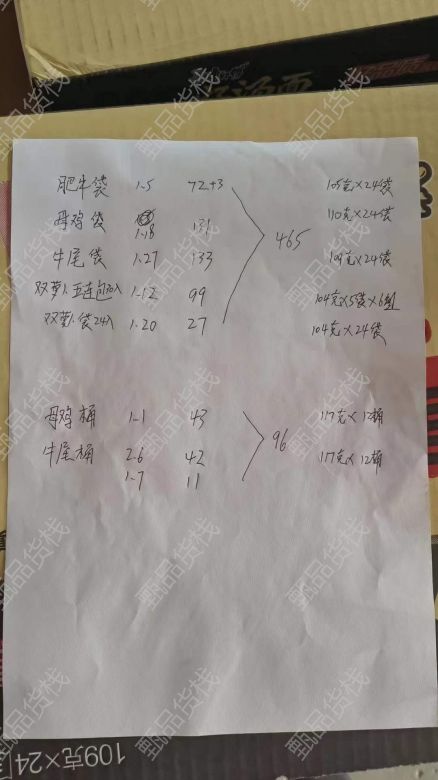 肥牛袋 1-5 72+3 105克×24袋
母鸡袋 1-18 131 110克×24袋
465
牛尾袋 1-27 133 109克×24袋
双萝卜五连包30入 1-12 99 104克×5袋×6组
双萝卜袋24入 1-20 27 104克×24袋
母鸡桶 1-1 43 117克×12桶
96
牛尾桶 2-6 42 117克×12桶
1-7 11
109克×24
甄品货栈